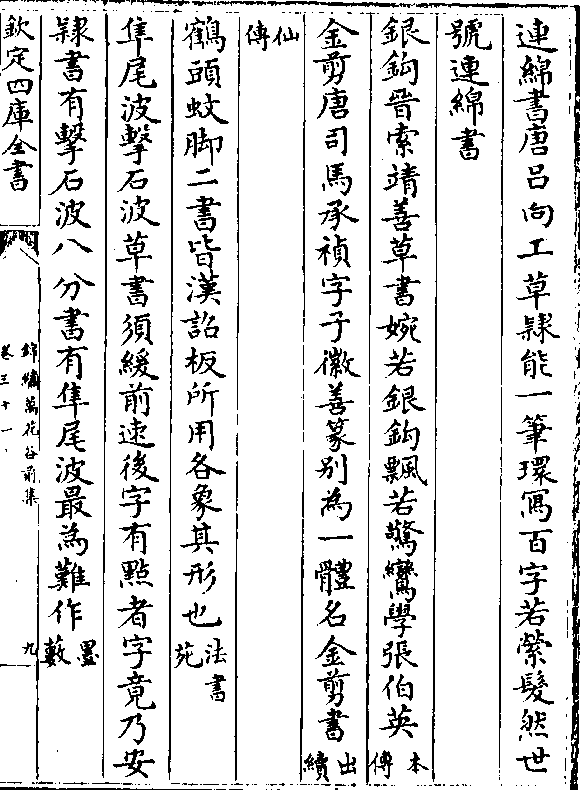 連綿書唐呂向工草隸能一筆環寫百字若縈髮然世
號連綿書
銀鈎晉索靖善草書婉若銀鈎飄若驚鸞學張伯英本傳
金剪唐司馬承禎字子徽善篆别為一體名金剪書出續
仙傳
鶴頭蚊脚二書皆漢詔板所用各象其形也法書苑
隼尾波擊石波草書須緩前速後字有點者字竟乃安
隸書有擊石波八分書有隼尾波最為難作墨藪
欽定四庫全書
錦繡萬花谷前集
卷三十一
九